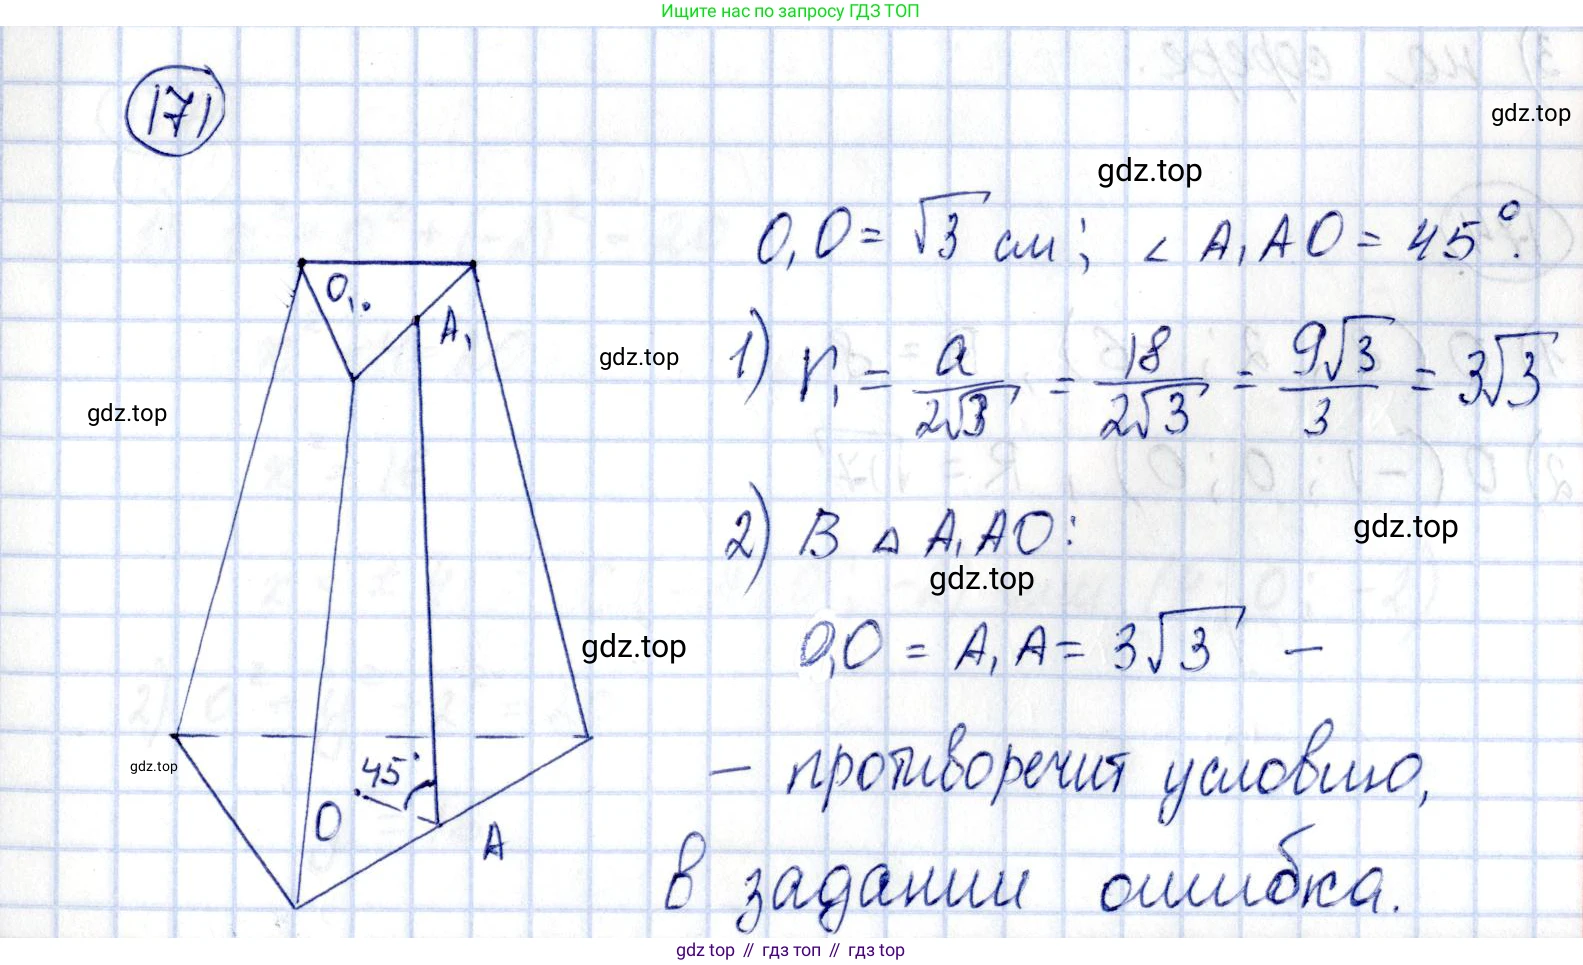 Ищите нас по запросу ГДЗ ТОП
171
gdz.top
gdz.top
O₁O = √3 см; ∠ A₁AO = 45°.
O₁.
A₁
gdz.top
1) r₁ = a/2√3 = 18/2√3 = 9√3/3 = 3√3
gdz.top
gdz.top
2) В △ A₁AO:
gdz.top
gdz.top
O₁O = A₁A = 3√3 –
gdz.top
45°
O
A
– противоречит условию,
в задании ошибка.
gdz.top // гдз топ // гдз top